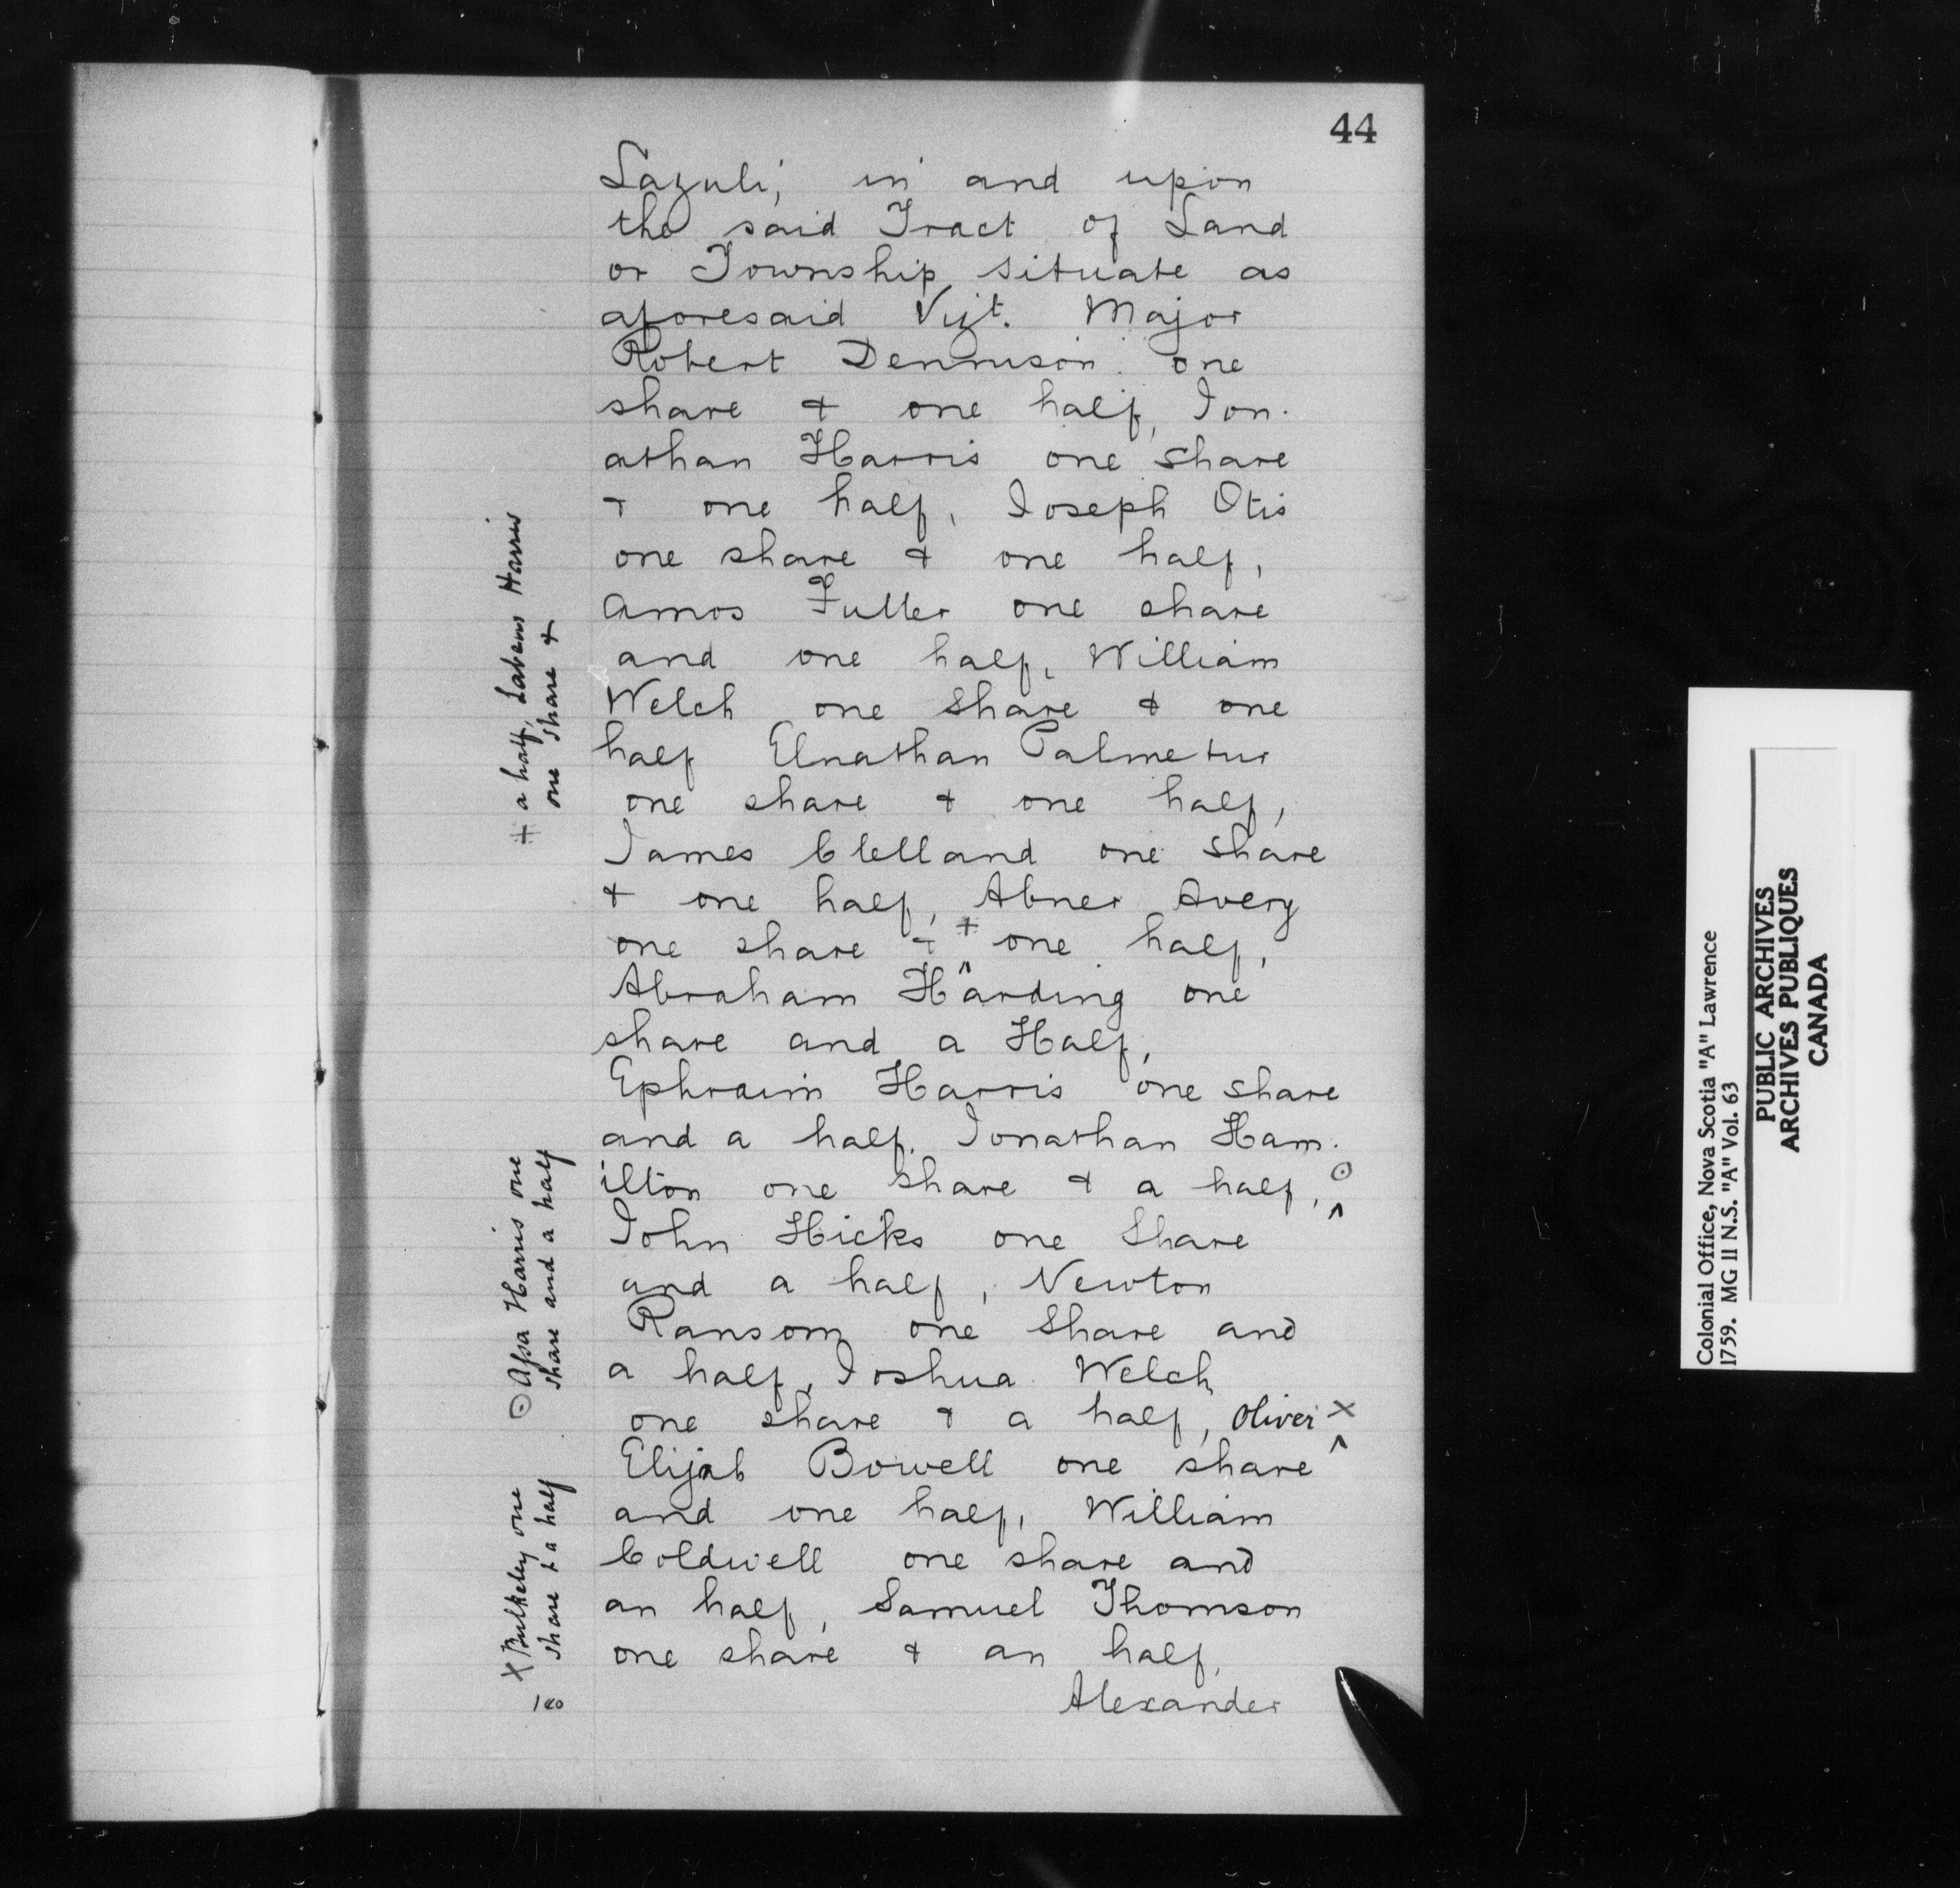 44
Lazuli, in and upon
the said Tract of Land
or Township situate as
aforesaid Vizt. Major
Robert Dennison one
share & one half, Jon-
athan Harris one share
& one half, Joseph Otis
one share & one half,
Amos Fuller one share
and one half, William
Welch one share & one
half Elnathan Palmetur
one share & one half,
James Clelland one share
& one half, Abner Avery
one share & ‡ one half,
Abraham Harding one
share and a Half,
Ephraim Harris one share
and a half. Jonathan Ham-
ilton one share & a half, ⊙
John Hicks one Share
and a half, Newton
Ransom one Share and
a half, Joshua Welch
one share & a half, Oliver ×
Elijah Bowell one share
and one half, William
Coldwell one share and
an half, Samuel Thomson
one share & an half,
Alexander
‡ a half, Labeus Harris
one share &
⊙ Assa Harris one
share and a half
× Bulkeley one
share & a half
180
Colonial Office, Nova Scotia "A" Lawrence
1759. MG 11 N.S. "A" Vol. 63
PUBLIC ARCHIVES
ARCHIVES PUBLIQUES
CANADA